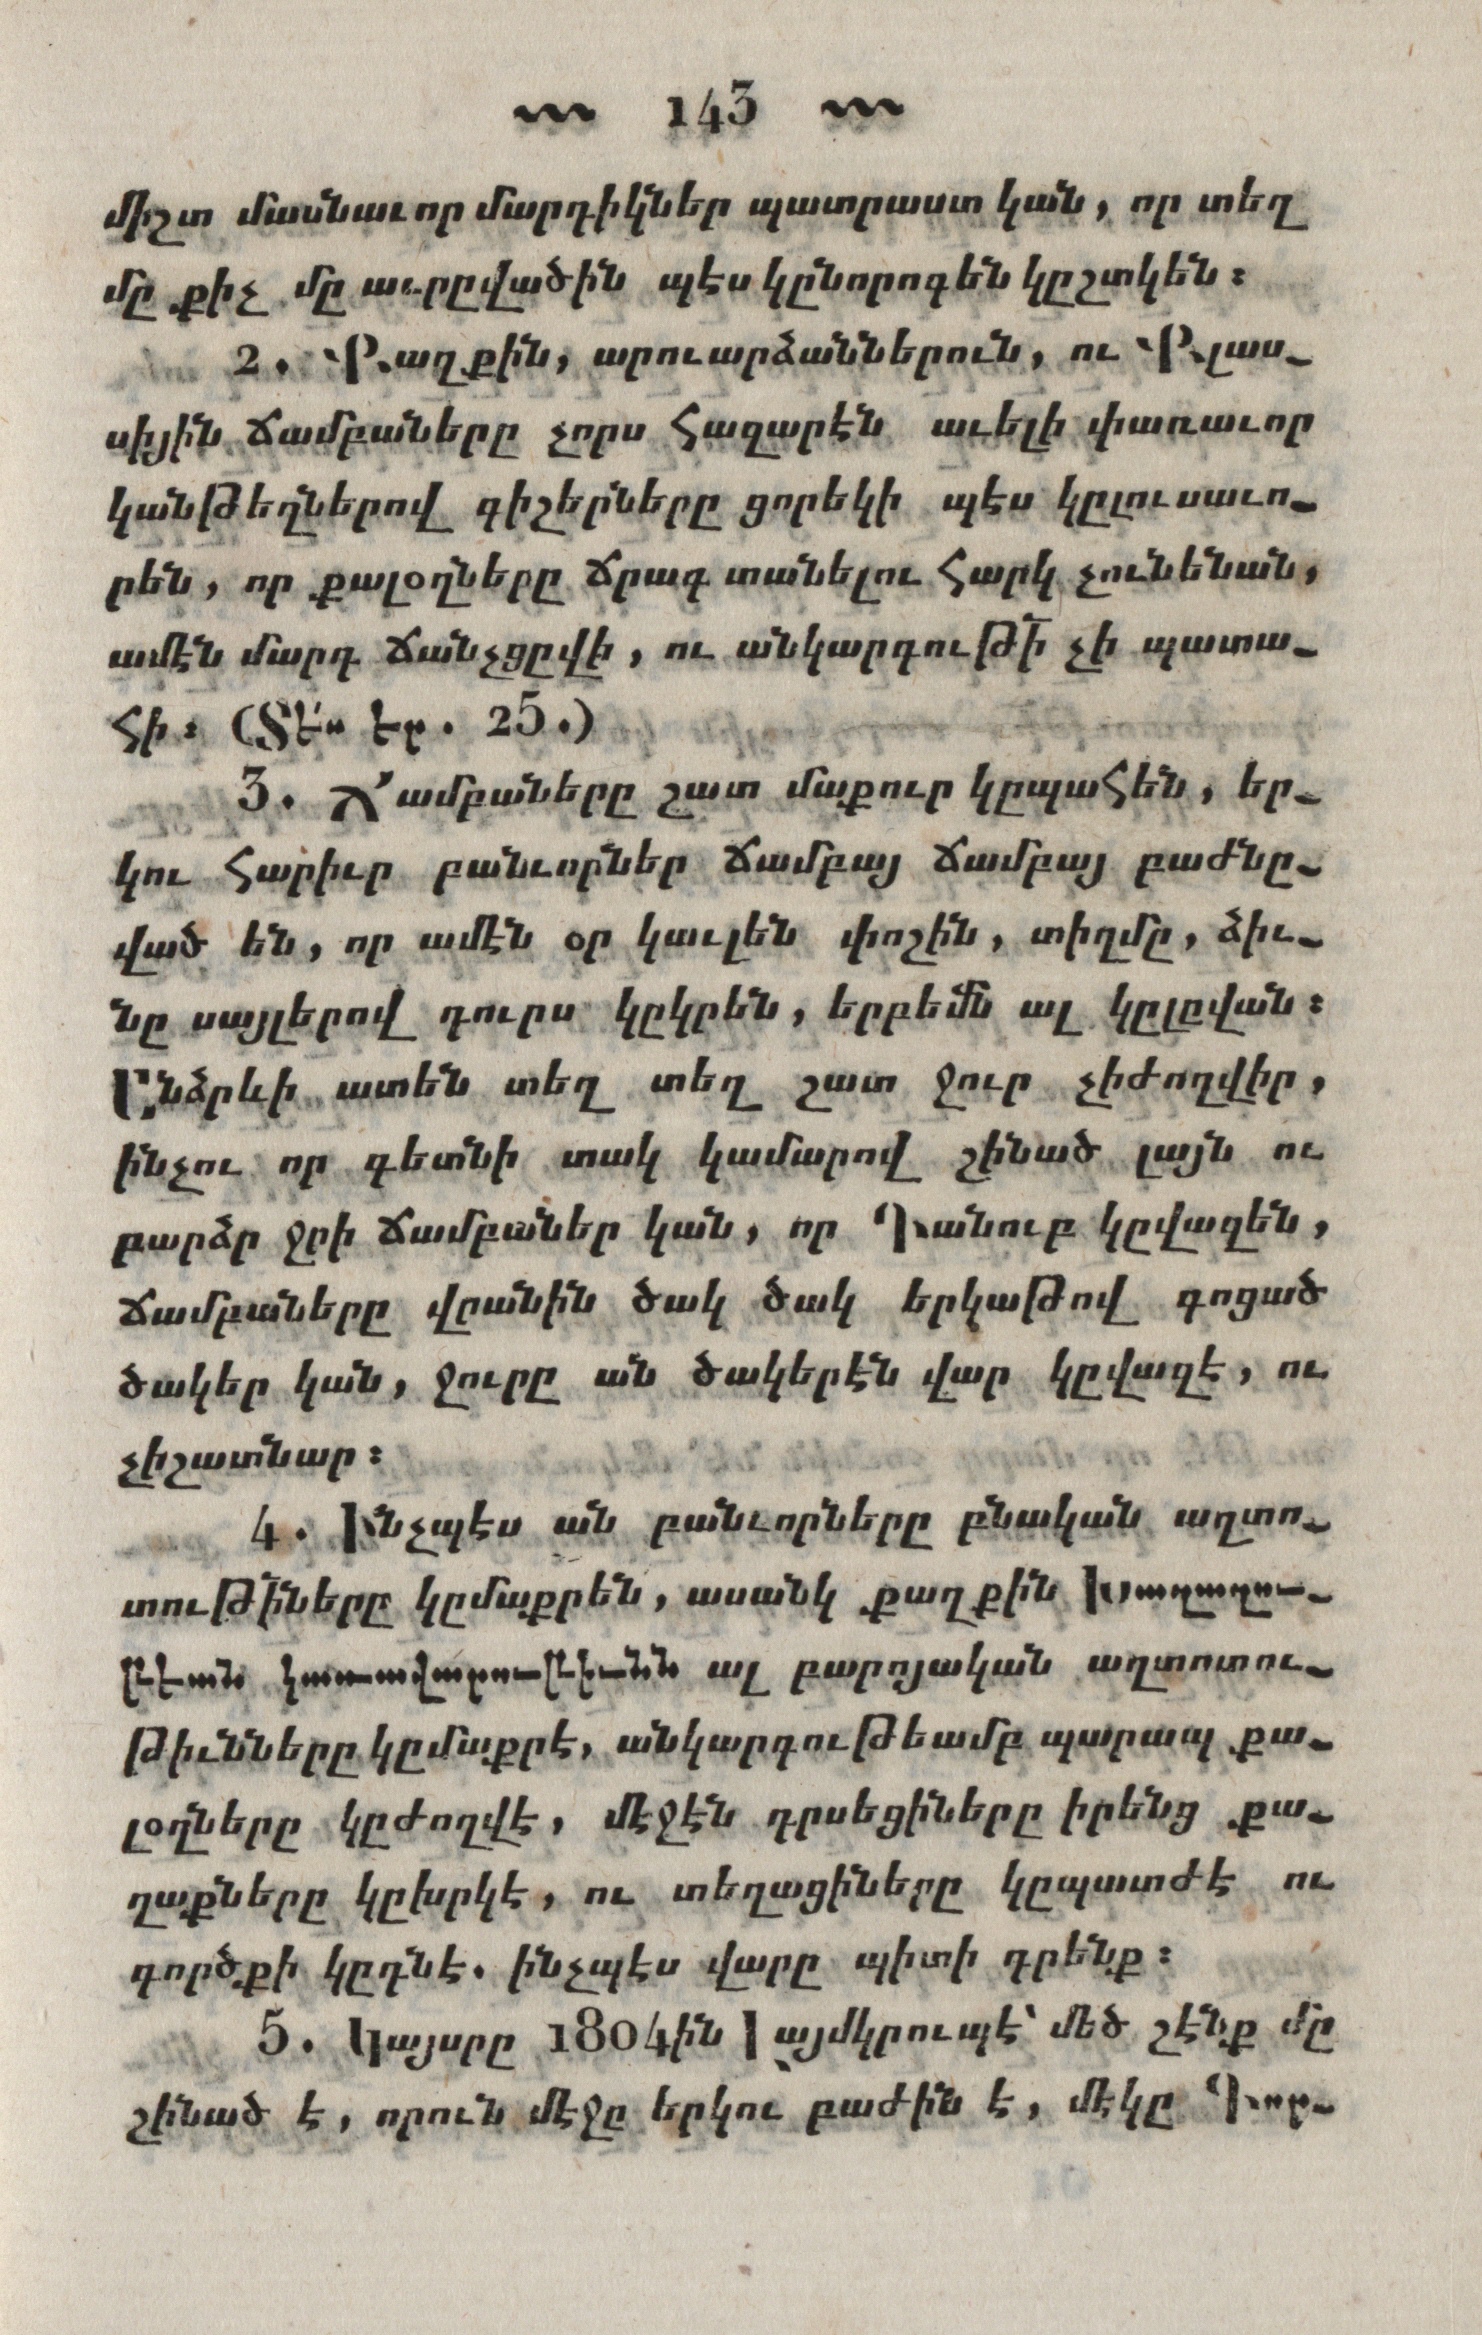 143
միշտ մասնաւոր մարդիկներ պատրաստ կան, որ տեղ
մը քիչ մը աւրըվածին պէս կընորոգեն կըշտկեն։
2. Քաղքին, արուարձաններուն, ու Քլաս֊
սիյին ճամբաները չորս հազարէն աւելի փառաւոր
կանթեղներով գիշերները ցորեկի պէս կըլուսաւո֊
րեն, որ քալօղները ճրագ տանելու հարկ չունենան,
ամէն մարդ ճանչցըվի, ու անկարդութի՜ չի պատա֊
հի։ (Տե՛ս էջ. 25.)
3. Ճամբաները շատ մաքուր կըպահեն, եր֊
կու հարիւր բանւորներ ճամբայ ճամբայ բաժնը֊
ված են, որ ամէն օր կաւլեն փոշին, տիղմը, ձիւ֊
նը սայլերով դուրս կըկրեն, երբեմն ալ կըլըվան։
Ընձրևի ատեն տեղ տեղ շատ ջուր չիժողվիր,
ինչու որ գետնի տակ կամարով շինած լայն ու
բարձր ջրի ճամբաներ կան, որ Դանուբ կըվազեն,
ճամբաները վրանին ծակ ծակ երկաթով գոցած
ծակեր կան, ջուրը ան ծակերէն վար կըվազէ, ու
չիշատնար։
4. Ինչպէս ան բանւորները բնական աղտո֊
տութի՜ները կըմաքրեն, ասանկ քաղքին Խաղաղու֊
թեան կառավարութիւնն ալ բարոյական աղտոտու֊
թիւնները կըմաքրէ, անկարդութեամբ պարապ քա֊
լօղները կըժողվէ, մէջէն դրսեցիները իրենց քա֊
ղաքները կըխրկէ, ու տեղացիները կըպատժէ ու
գործքի կըդնէ. ինչպէս վարը պիտի դրենք։
5. Կայսրը 1804ին Լայմկրուպէ՝ մեծ շէնք մը
շինած է, որուն մէջը երկու բաժին է, մէկը Գոր֊